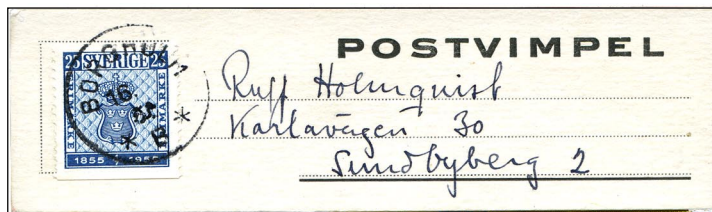 POSTVIMPEL
25 SVERIGE 25
FRIMÄRKE
1855 1955
16
Holmquist
Karlavägen 30
Sundbyberg 2